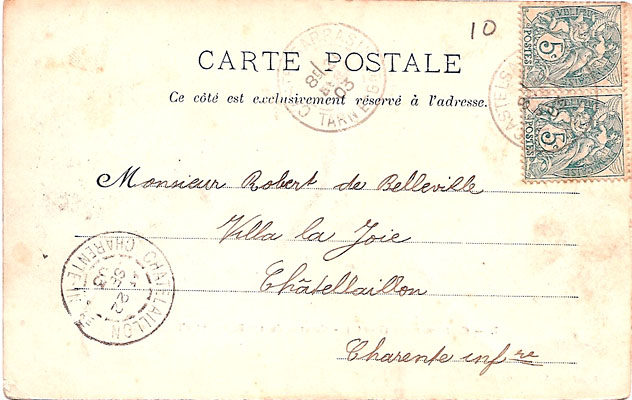 10
CARTE POSTALE
Ce côté est exclusivement réservé à l'adresse.
5c
POSTES
5c
POSTES
Monsieur Robert de Belleville
Villa la Joie
Châtellaillon
Charente infre
CHATELLAILLON
CHARENTE